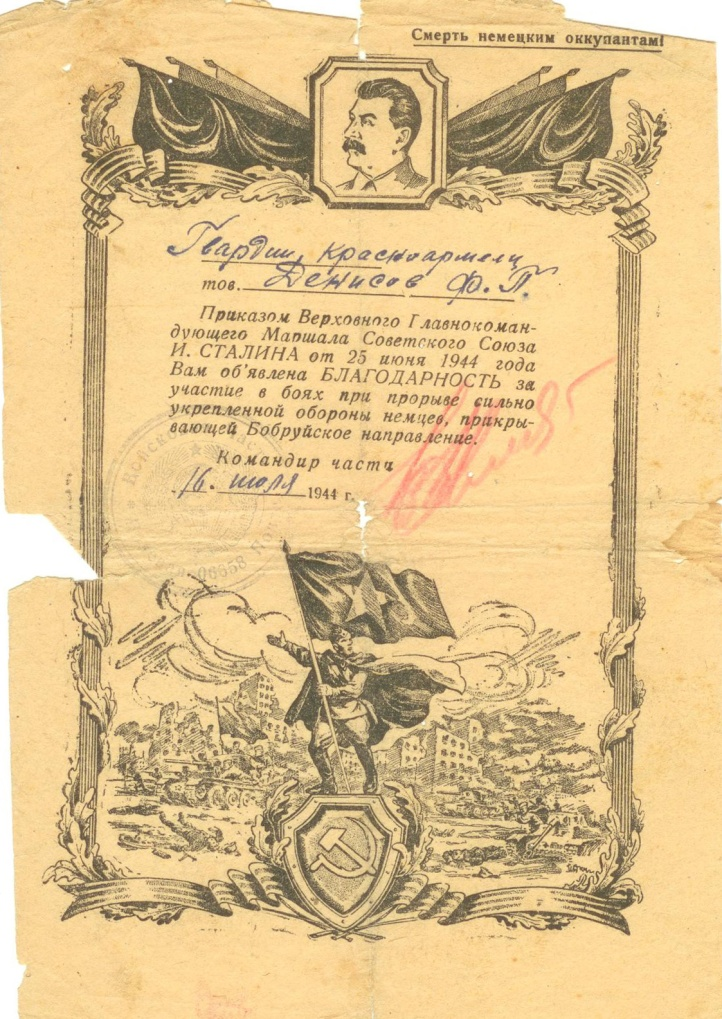 Смерть немецким оккупантам!
Гвардии, красноармеец
тов. Денисов Ф. П.
Приказом Верховного Главнокоман-
дующего Маршала Советского Союза
И. СТАЛИНА от 25 июня 1944 года
Вам об'явлена БЛАГОДАРНОСТЬ за
участие в боях при прорыве сильно
укрепленной обороны немцев, прикры-
вающей Бобруйское направление.
Командир части
16. июля 1944 г.
06658